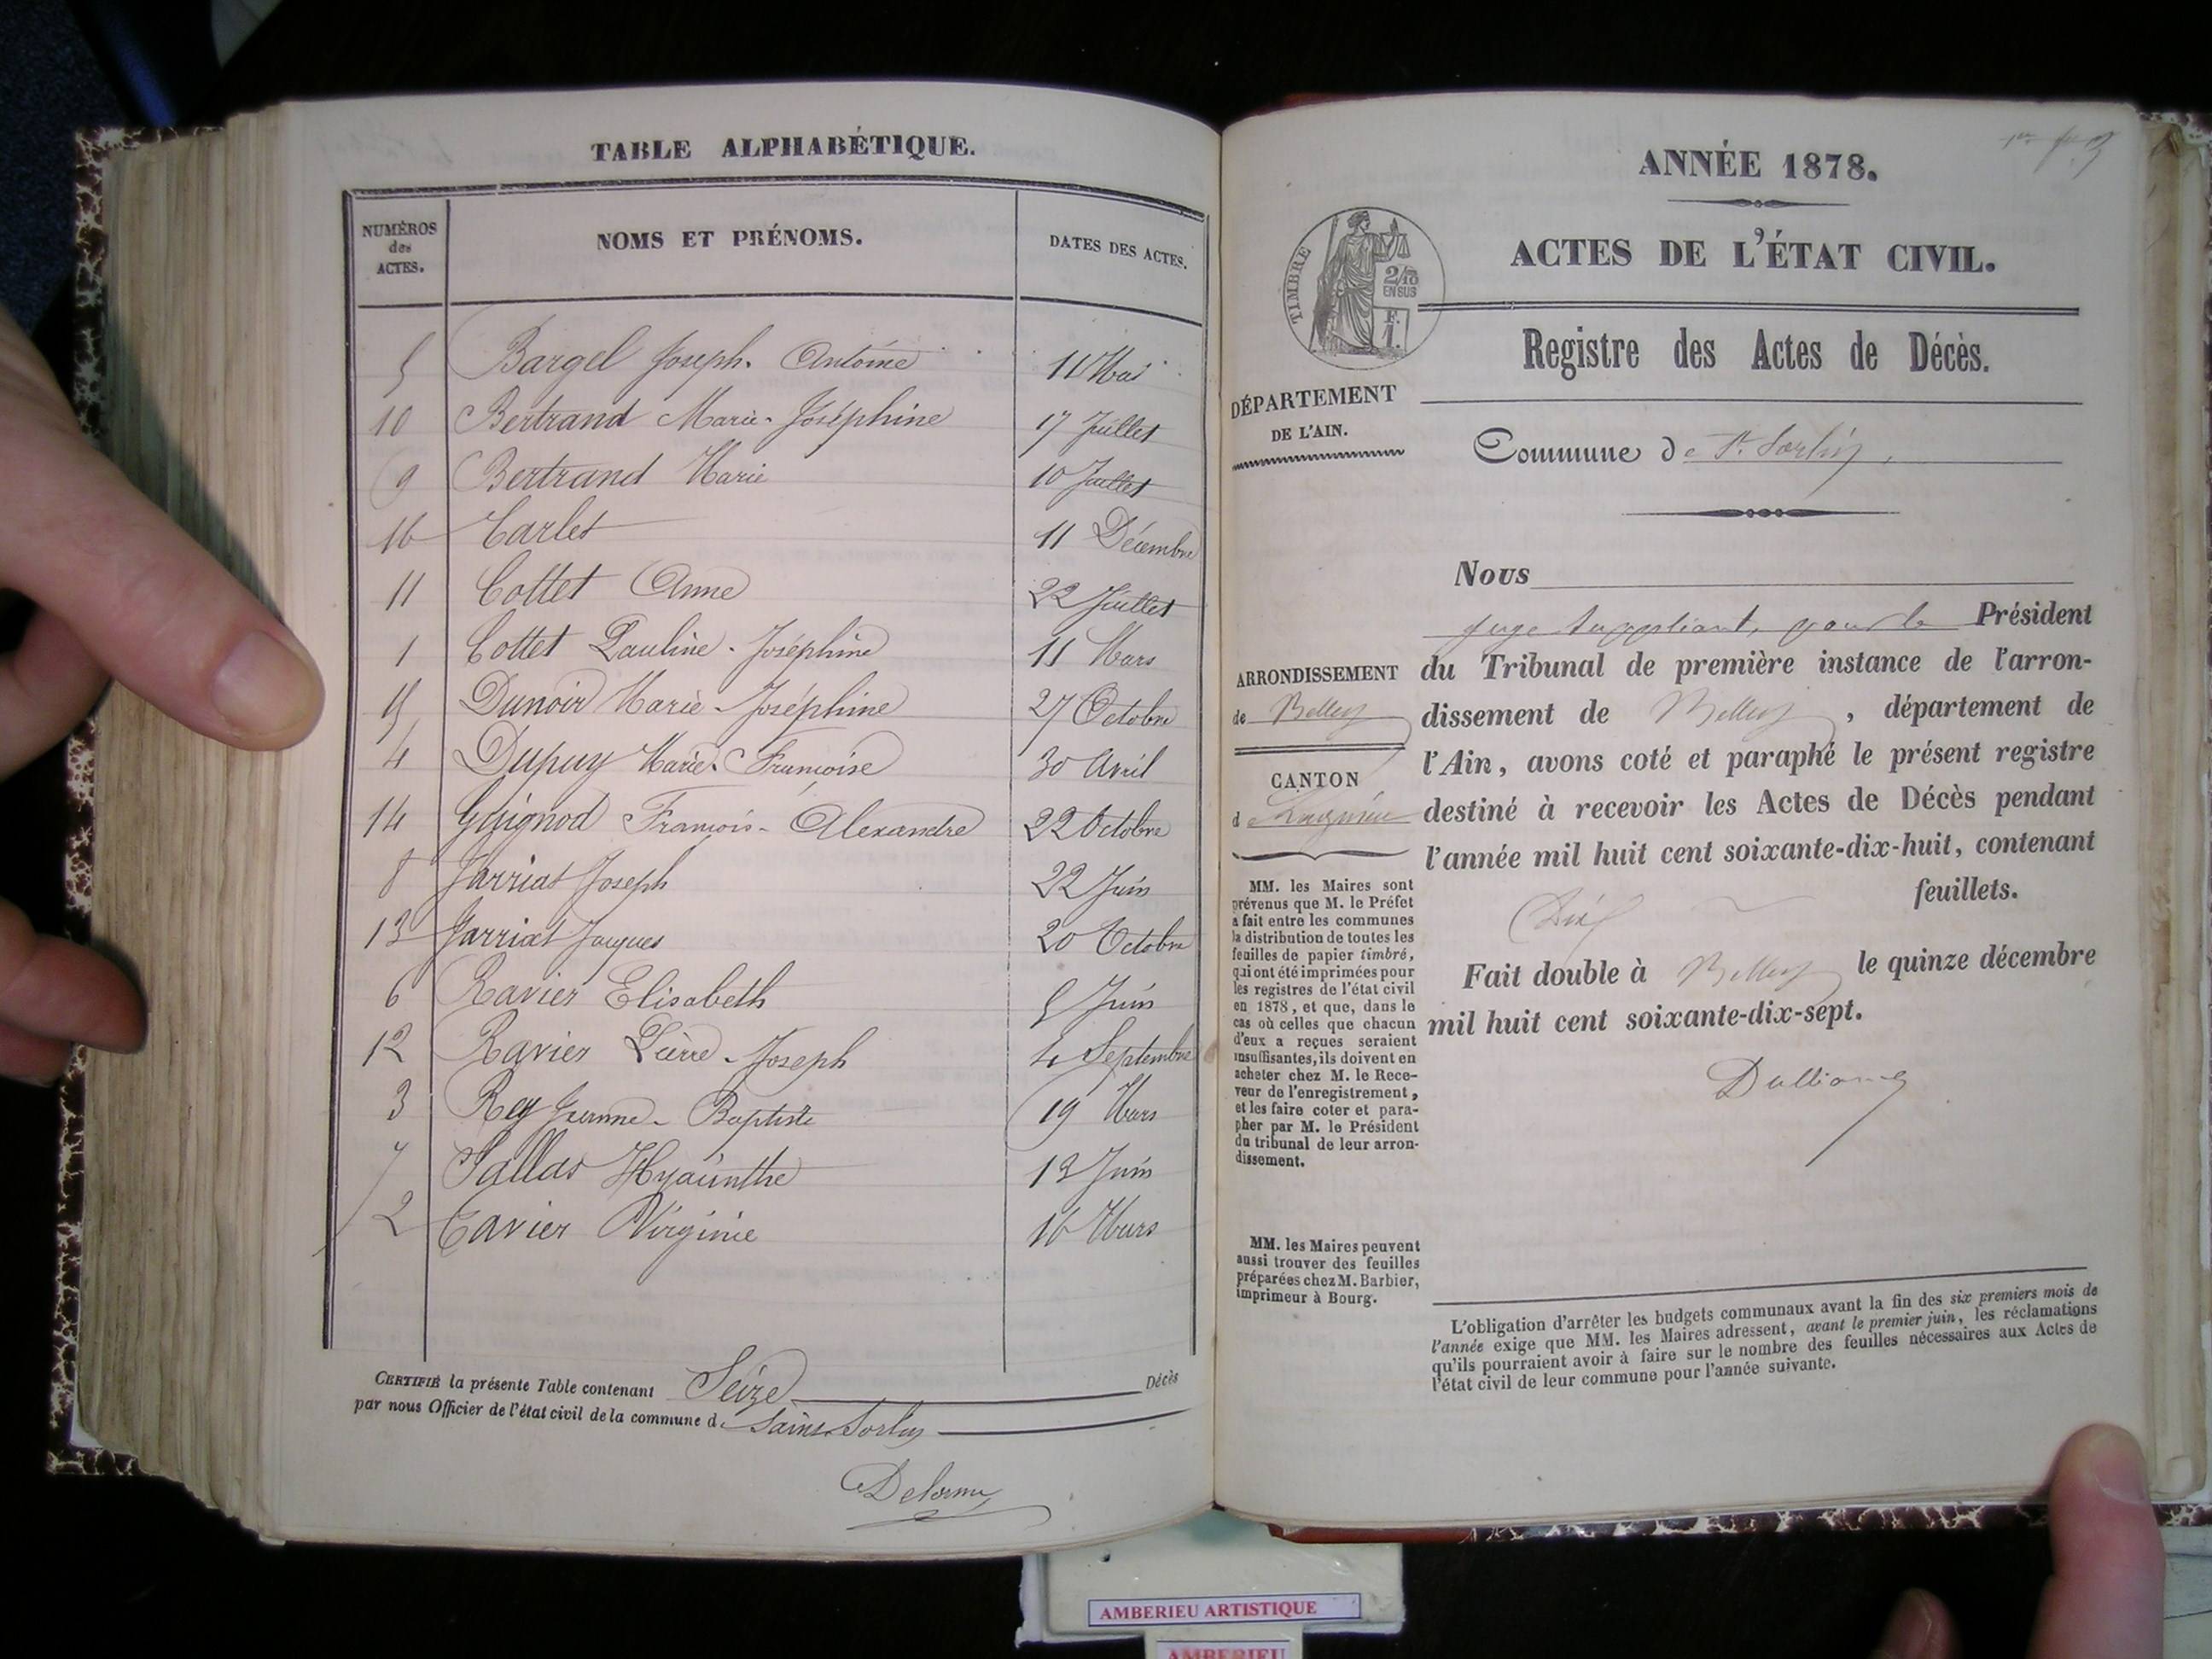 TABLE ALPHABÉTIQUE.
NUMÉROS
des
ACTES.
NOMS ET PRÉNOMS.
DATES DES ACTES.
5 Bargel Joseph. Antoine 11 Mai
10 Bertrand Marie-Joséphine 17 Juillet
9 Bertrand Marie 10 Juillet
16 Carlet 11 Décembre
11 Cottet Anne 22 Juillet
1 Cottet Pauline-Joséphine 11 Mars
15 Dunoir Marie-Joséphine 27 Octobre
4 Dupuy Marie-Francoise 30 Avril
14 François-Alexandre 22 Octobre
8 Jarriat Joseph 22 Juin
13 Jarriat Jacques 20 Octobre
6 Ravier Elisabeth 5 Juin
12 Ravier Pierre-Joseph 4 Septembre
3 Rey Jeanne-Baptiste 19 Mars
7 Hyacinthe 13 Juin
2 Tavier Virginie 16 Mars
CERTIFIÉ la présente Table contenant Seize Décès
par nous Officier de l'état civil de la commune de Saint Sorlin
Delorme
ANNÉE 1878.
ACTES DE L'ÉTAT CIVIL.
TIMBRE
2/10
EN SUS
F.
1.
Registre des Actes de Décès.
DÉPARTEMENT
DE L'AIN.
Commune de St. Sorlin,
Nous
juge suppléant, pour le Président
du Tribunal de première instance de l'arron-
dissement de Belley, département de
l'Ain, avons coté et paraphé le présent registre
destiné à recevoir les Actes de Décès pendant
l'année mil huit cent soixante-dix-huit, contenant
Dix feuillets.
Fait double à Belley le quinze décembre
mil huit cent soixante-dix-sept.
ARRONDISSEMENT
de Belley
CANTON
de Lagnieu
MM. les Maires sont
prévenus que M. le Préfet
a fait entre les communes
la distribution de toutes les
feuilles de papier timbré,
qui ont été imprimées pour
les registres de l'état civil
en 1878, et que, dans le
cas où celles que chacun
d'eux a reçues seraient
insuffisantes, ils doivent en
acheter chez M. le Rece-
veur de l'enregistrement,
et les faire coter et para-
pher par M. le Président
du tribunal de leur arron-
dissement.
MM. les Maires peuvent
aussi trouver des feuilles
préparées chez M. Barbier,
imprimeur à Bourg.
L'obligation d'arrêter les budgets communaux avant la fin des six premiers mois de
l'année exige que MM. les Maires adressent, avant le premier juin, les réclamations
qu'ils pourraient avoir à faire sur le nombre des feuilles nécessaires aux Actes de
l'état civil de leur commune pour l'année suivante.
AMBERIEU ARTISTIQUE
AMBERIEU